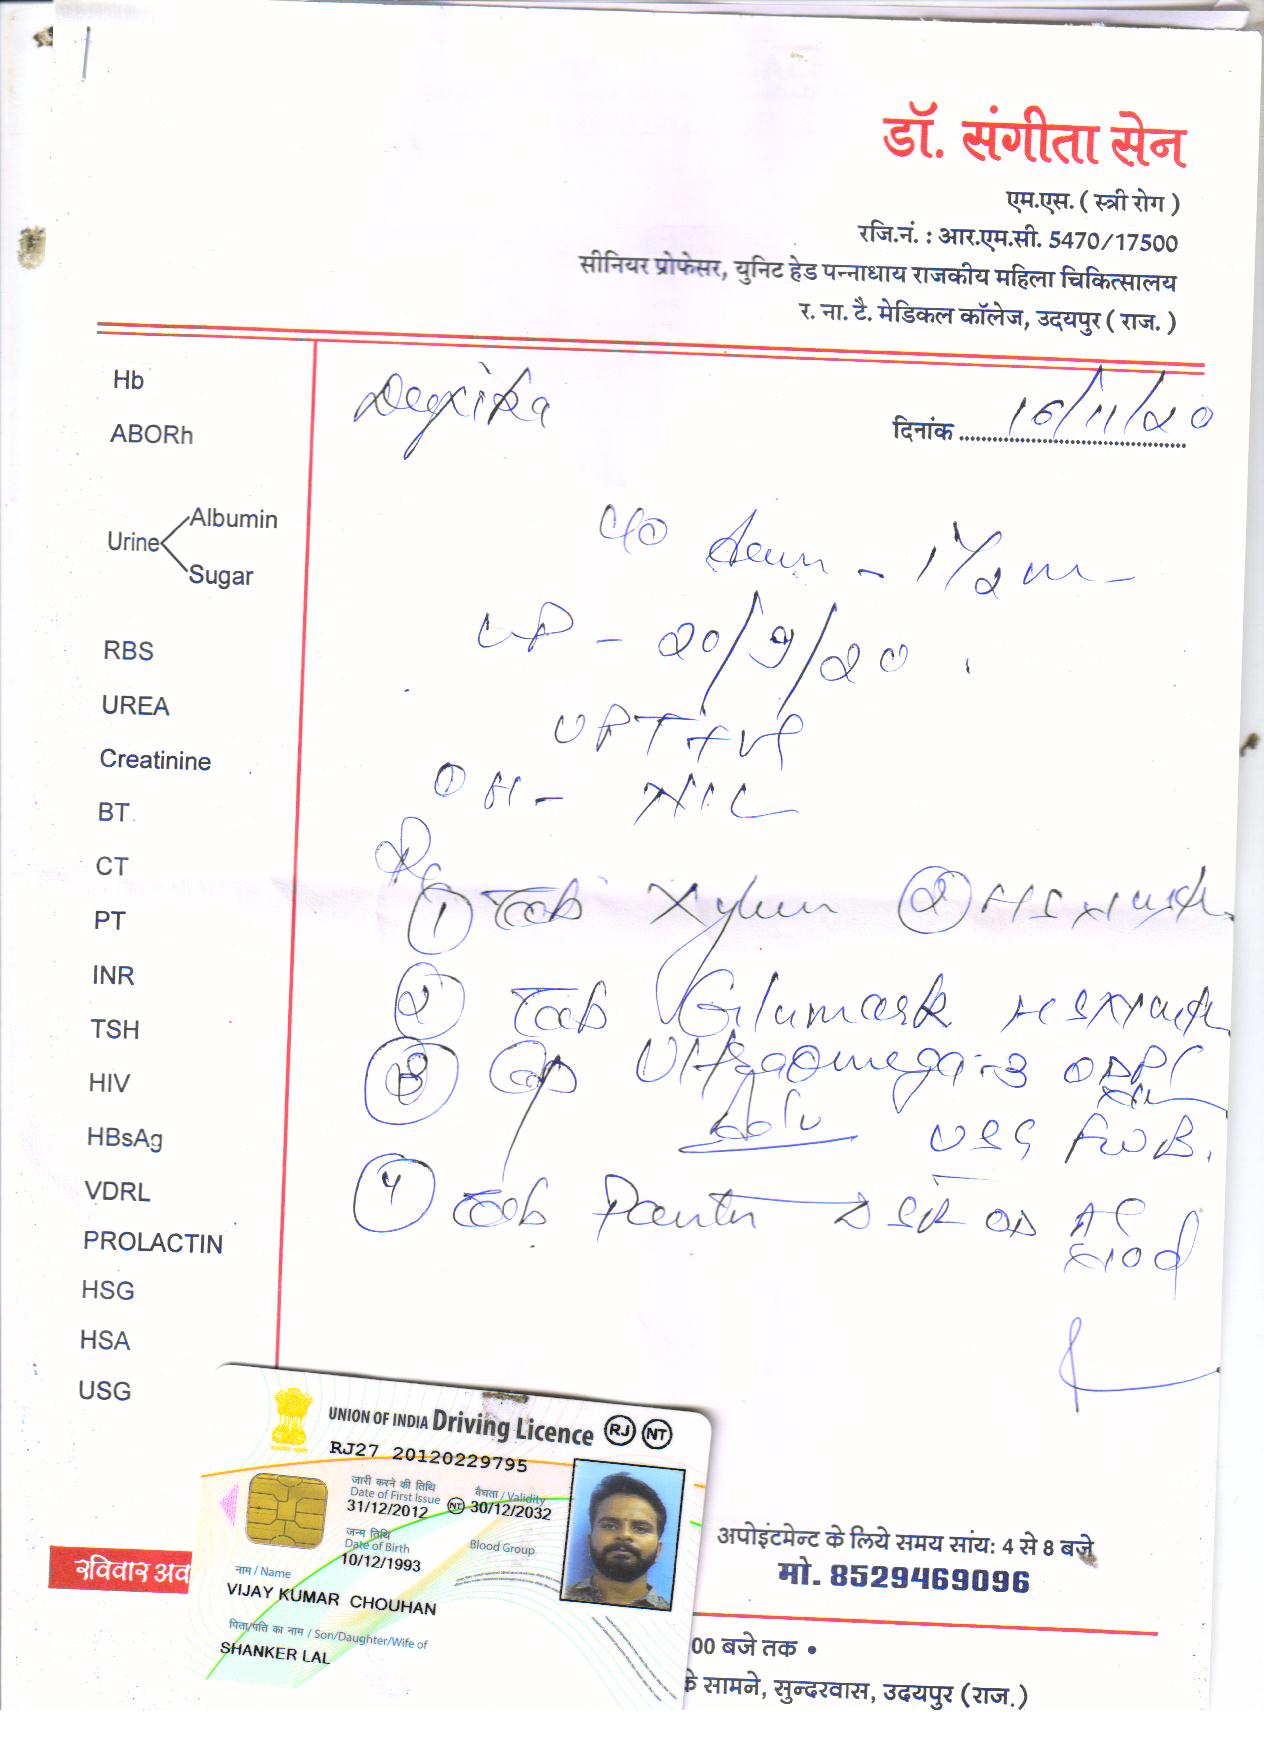 डॉ. संगीता सेन
एम.एस. ( स्त्री रोग )
रजि.नं. : आर.एम.सी. 5470/17500
सीनियर प्रोफेसर, युनिट हेड पन्नाधाय राजकीय महिला चिकित्सालय
र. ना. टै. मेडिकल कॉलेज, उदयपुर ( राज. )
Hb
ABORh
Urine
Albumin
Sugar
RBS
UREA
Creatinine
BT
CT
PT
INR
TSH
HIV
HBsAg
VDRL
PROLACTIN
HSG
HSA
USG
दिनांक 16/11/20
C/O - 1 1/2 m -
LMP - 20/9/20
UPT +ve
OH - NIL
Rx
1 Tab
2 Tab
3 Cap Ultraomega-3 OD
USG FWB.
4 Tab DSR OD AC
x10d
UNION OF INDIA Driving Licence RJ NT
RJ27 20120229795
जारी करने की तिथि
Date of First Issue
31/12/2012
NT
वैधता / Validity
30/12/2032
जन्म तिथि
Date of Birth
10/12/1993
Blood Group
नाम / Name
VIJAY KUMAR CHOUHAN
पिता/पति का नाम / Son/Daughter/Wife of
SHANKER LAL
अपोइंटमेन्ट के लिये समय सांय: 4 से 8 बजे
मो. 8529469096
रविवार अव
00 बजे तक •
के सामने, सुन्दरवास, उदयपुर (राज.)